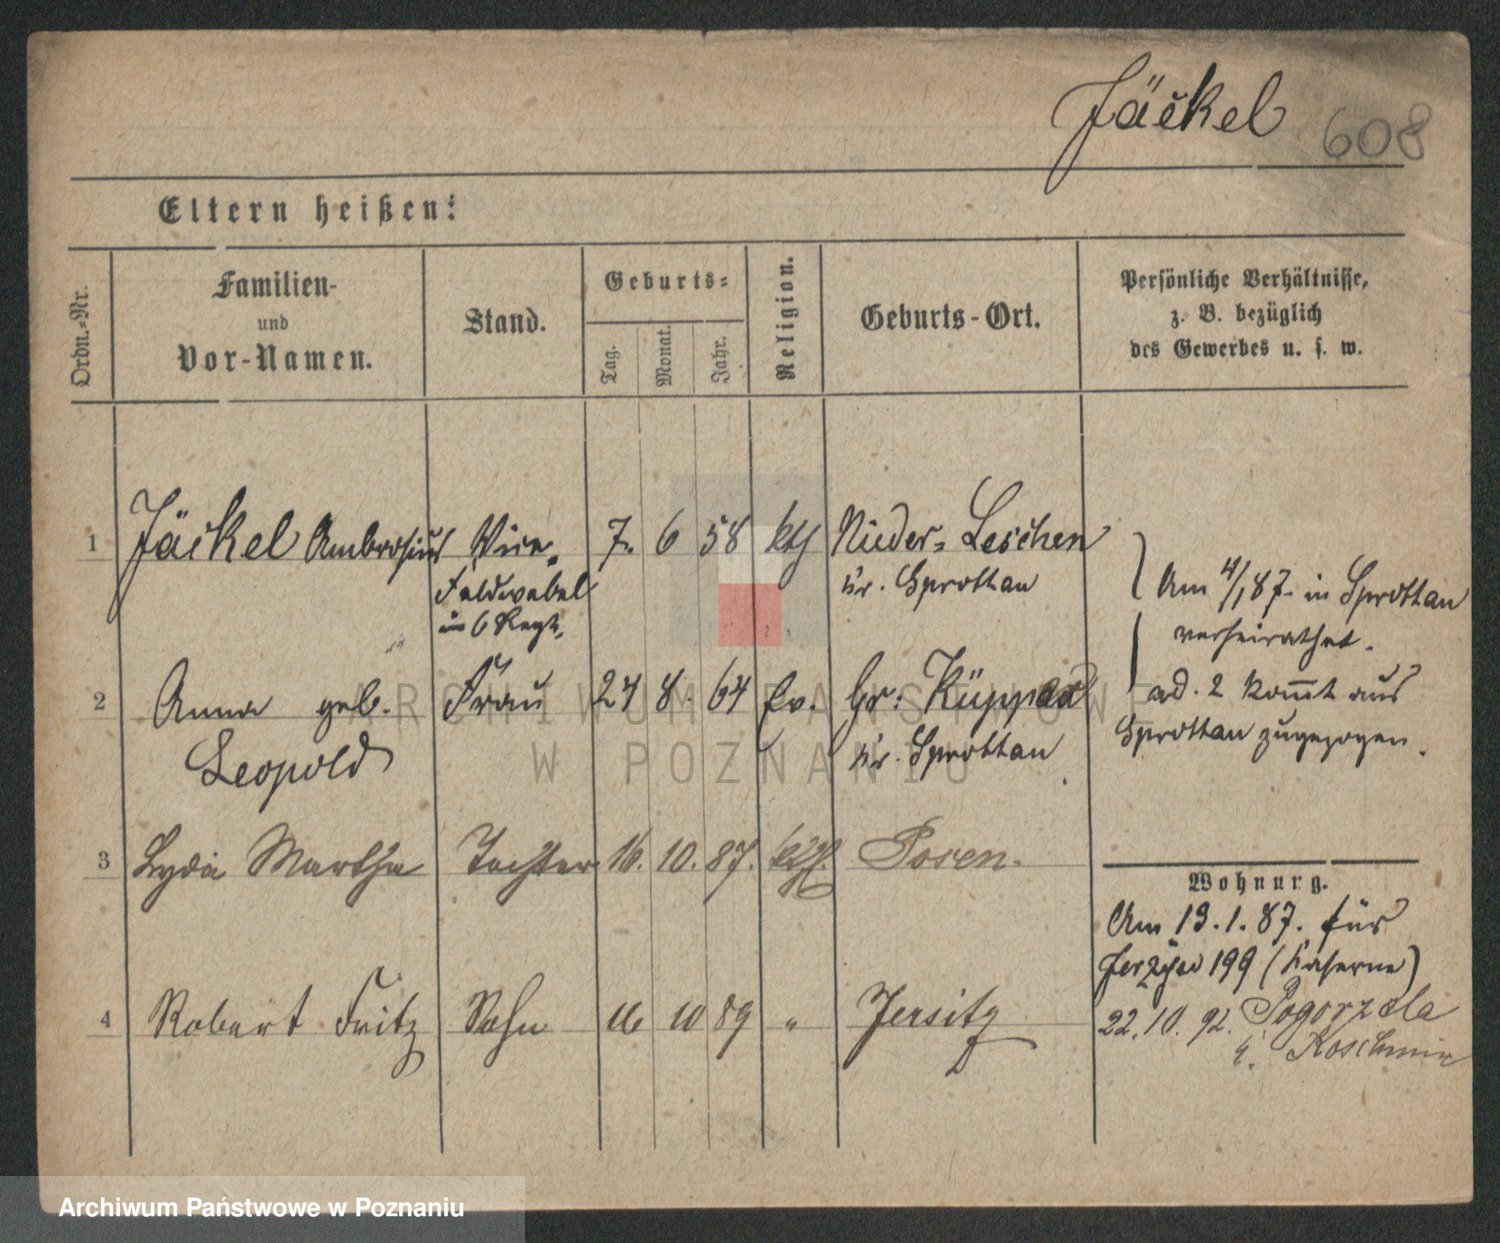 Jäckel 608
Eltern heißen:
Ordn.-Nr.
Familien-
und
Vor-Namen.
Stand.
Geburts-
Tag.
Monat.
Jahr.
Religion.
Geburts-Ort.
Persönliche Verhältnisse,
z. B. bezüglich
des Gewerbes u. s. w.
1 Jäckel Ambrosius Vice- 7. 6 58 kth Nieder-Leschen
Feldwebel kr. Sprottau
im 6 Regt.
Am 4/1 87. in Sprottau
verheirathet.
2 Anna geb. Frau 27 8. 64 Ev. Gr: Küpper
Leopold kr. Sprottau
ad. 2 kom̅t aus
Sprottau zugezogen.
3 Lydia Martha Tochter 16. 10. 87. kth. Posen.
4 Robert Fritz Sohn 16 10 89 " Jersitz
Wohnung.
Am 13.1.87. für
Jerzyce 199 (Kaserne)
22.10.92. Pogorzela
k. Koschmin
ARCHIWUM PAŃSTWOWE
W POZNANIU
Archiwum Państwowe w Poznaniu